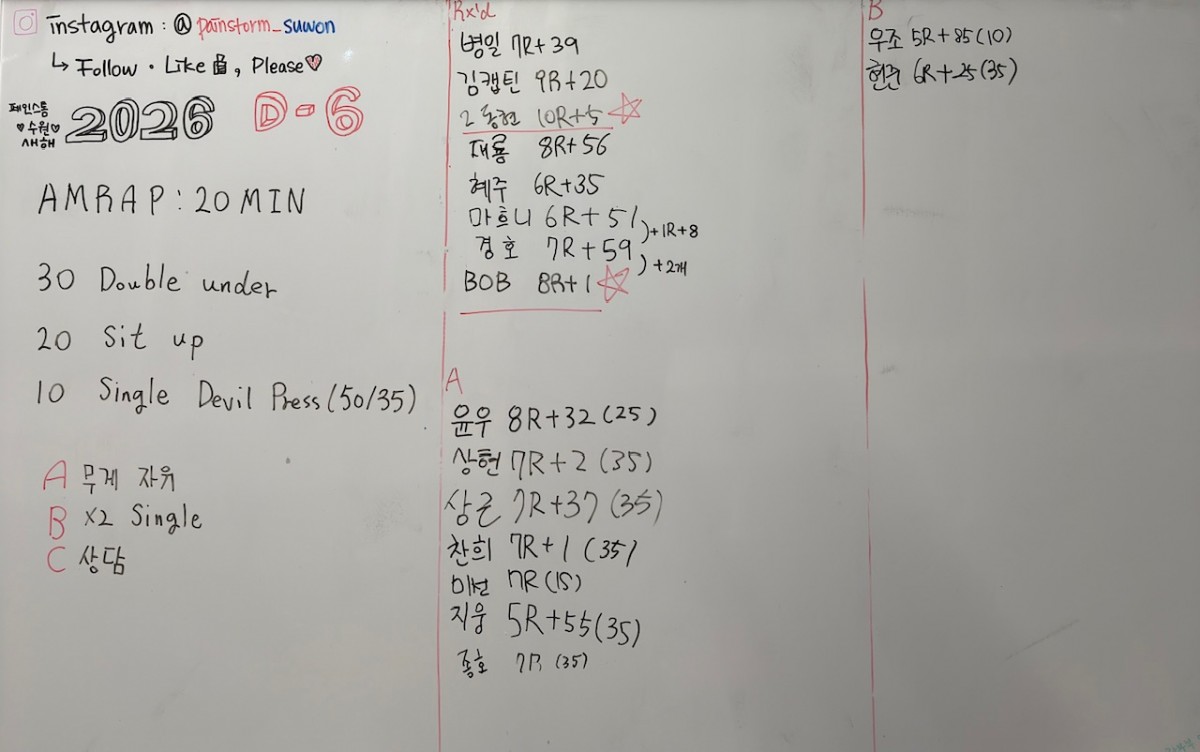 instagram : @painstorm_suwon
↳ Follow · Like, Please♡
페인스톰
♥수원♥
새해
2026 D-6
AMRAP : 20 MIN
30 Double under
20 Sit up
10 Single Devil Press (50/35)
A 무게 자유
B x2 Single
C 상담
Rx'd
병일 7R+39
김캡틴 9R+20
2동현 10R+5 ☆
재룡 8R+56
혜주 6R+35
마흐니 6R+51 )+1R+8
경호 7R+59 )+2개
BOB 8R+1 ☆
A
윤우 8R+32 (25)
상현 7R+2 (35)
상근 7R+37 (35)
찬희 7R+1 (35)
미선 7R (15)
지웅 5R+55 (35)
종호 7R (35)
B
우조 5R+85 (10)
현준 6R+25 (35)